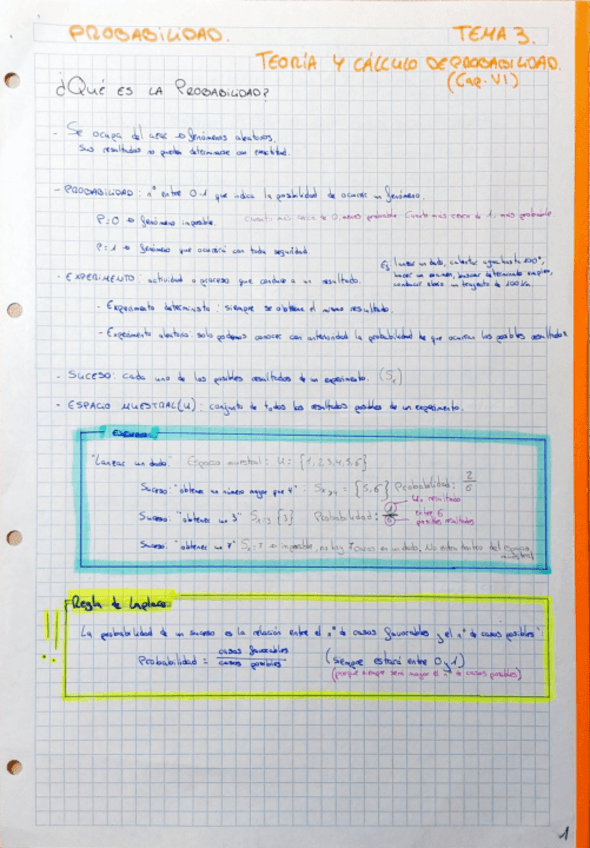 PROBABILIDAD. TEMA 3.
TEORÍA Y CÁLCULO DE PROBABILIDAD.
(Cap. VI)
¿QUÉ ES LA PROBABILIDAD?
- Se ocupa del azar → fenómenos aleatorios.
Sus resultados no pueden determinarse con exactitud.
- PROBABILIDAD: nº entre 0-1 que indica la posibilidad de ocurrir un fenómeno.
P=0 → fenómeno imposible. Cuanto más cerca de 0, menos probable. Cuanto más cerca de 1, más probable
P=1 → fenómeno que ocurrirá con toda seguridad.
- EXPERIMENTO: actividad o proceso que conduce a un resultado.
Ej: lanzar un dado, calentar agua hasta 100°,
hacer un examen, buscar determinado empleo,
conducir un trayecto de 100 km.
- Experimento determinista: siempre se obtiene el mismo resultado.
- Experimento aleatorio: solo podemos conocer con anterioridad la probabilidad de que ocurran los posibles resultados
- SUCESO: cada uno de los posibles resultados de un experimento. (Sx)
- ESPACIO MUESTRAL (U): conjunto de todos los resultados posibles de un experimento.
EJEMPLO:
"Lanzar un dado." Espacio muestral: U: {1,2,3,4,5,6}
Suceso: "obtener un número mayor que 4": Sx>4 = {5,6} Probabilidad: 2/6
Suceso: "obtener un 3" Sx=3 {3} Probabilidad: 1/6
un resultado
entre 6
posibles resultados
Suceso: "obtener un 7" Sx=7 → imposible, no hay 7 caras en un dado. No entra dentro del espacio
muestral
Regla de Laplace:
!!
La probabilidad de un suceso es la relación entre el nº de casos favorables y el nº de casos posibles"
Probabilidad = casos favorables / casos posibles (siempre estará entre 0 y 1)
(porque siempre será mayor el nº de casos posibles)
1